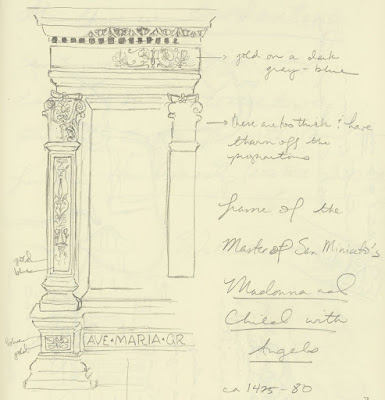 gold on a dark
gray-blue
these are too thick & have
thrown off the
proportions
frame of the
Master of San Miniato's
Madonna and
Child with
Angels
ca 1425-80
gold
blue
blue
gold
AVE•MARIA•GR